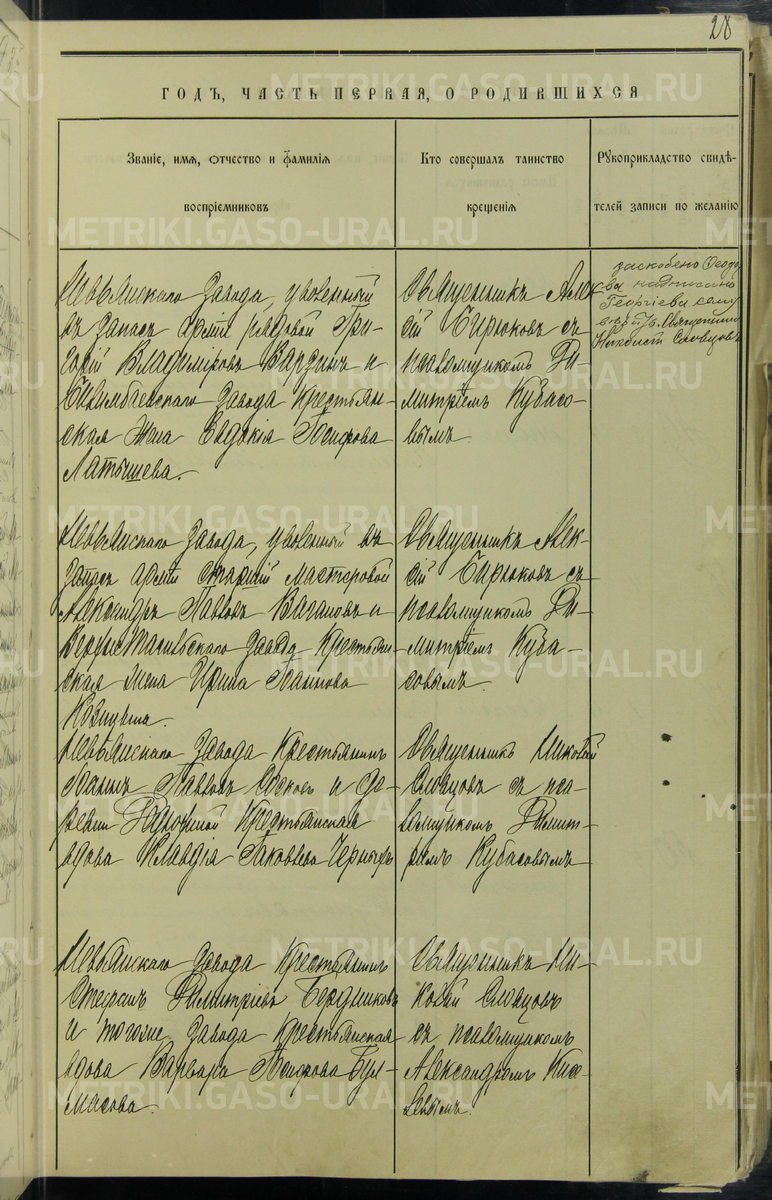 28
ГОДЪ, ЧАСТЬ ПЕРВАЯ, О РОДИВШИХСЯ
Званіе, имя, отчество и фамилія
воспріемниковъ
Кто совершалъ таинство
крещенія
Рукоприкладство свидѣ-
телей записи по желанію
Невьянскаго завода, уволенный
въ запасъ арміи рядовой Гри-
горій Владиміровъ Вардинъ и
Билимбаевскаго завода крестьян-
ская жена Евдокія Іосифова
Латышева.
Священникъ Алек-
сій Бирюковъ съ
псаломщикомъ Ди-
митріемъ Кубасо-
вымъ.
надписано
Георгіева
Священникъ
Словцовъ
Невьянскаго завода, уволенный въ
запасъ арміи старшій мастеровой
Александръ Павловъ Вагановъ и
завода крестьян-
ская жена Ирина Іоаннова
Священникъ Алек-
сій Бирюковъ съ
псаломщикомъ Ди-
митріемъ Куба-
совымъ.
Невьянскаго завода крестьянинъ
Іоаннъ Павловъ и де-
ревни крестьянская
вдова Клавдія Іаковлева
Священникъ Николай
Словцовъ съ пса-
ломщикомъ Димит-
ріемъ Кубасовымъ
Невьянскаго завода крестьянинъ
Стефанъ Димитріевъ Бердниковъ
и тогоже завода крестьянская
вдова Варвара Іосифова Бур-
масова.
Священникъ Ни-
колай Словцовъ
съ псаломщикомъ
Александромъ Кис-
елевымъ.
METRIKI.GASO-URAL.RU